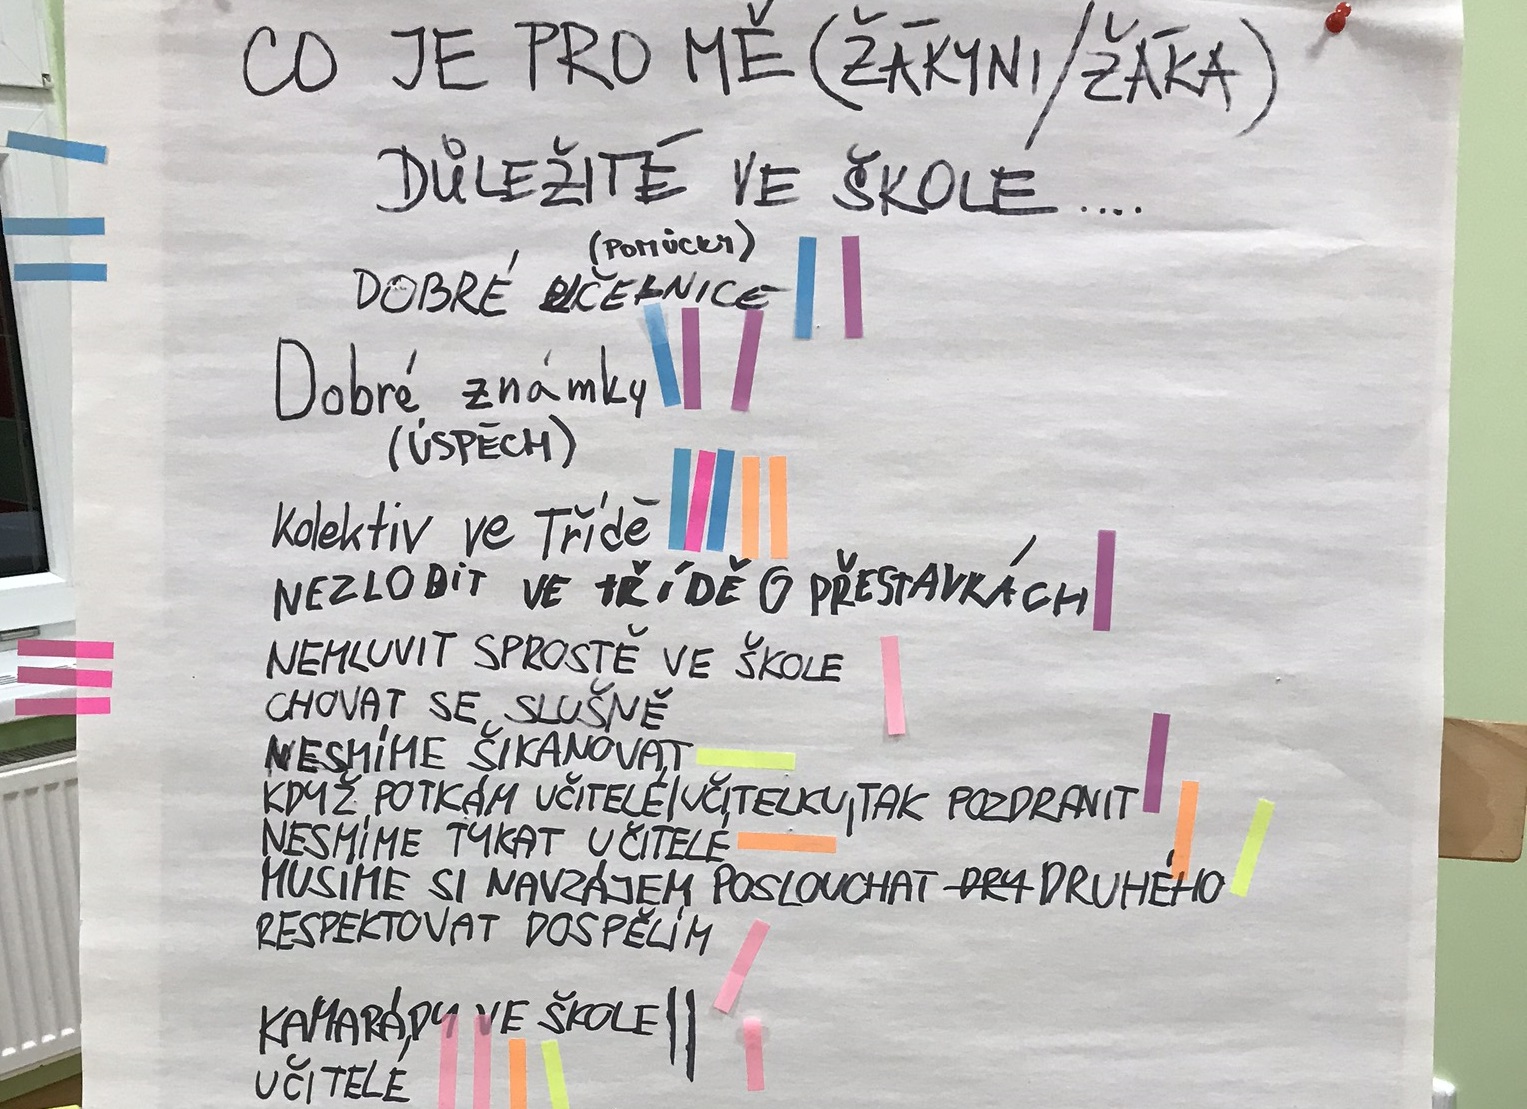 CO JE PRO MĚ (ŽÁKYNI/ŽÁKA)
DŮLEŽITÉ VE ŠKOLE....
(POMŮCKY)
DOBRÉ UČEBNICE
Dobré známky
(ÚSPĚCH)
Kolektiv ve Třídě
NEZLOBIT VE TŘÍDĚ O PŘESTAVKÁCH
NEMLUVIT SPROSTĚ VE ŠKOLE
CHOVAT SE SLUŠNĚ
NESMÍME ŠIKANOVAT
KDYŽ POTKÁM UČITELÉ/UČITELKU, TAK POZDRAVIT
NESMÍME TYKAT UČITELÉ
MUSÍME SI NAVZÁJEM POSLOUCHAT DRY DRUHÉHO
RESPEKTOVAT DOSPĚLÍM
KAMARÁDY VE ŠKOLE
UČITELÉ